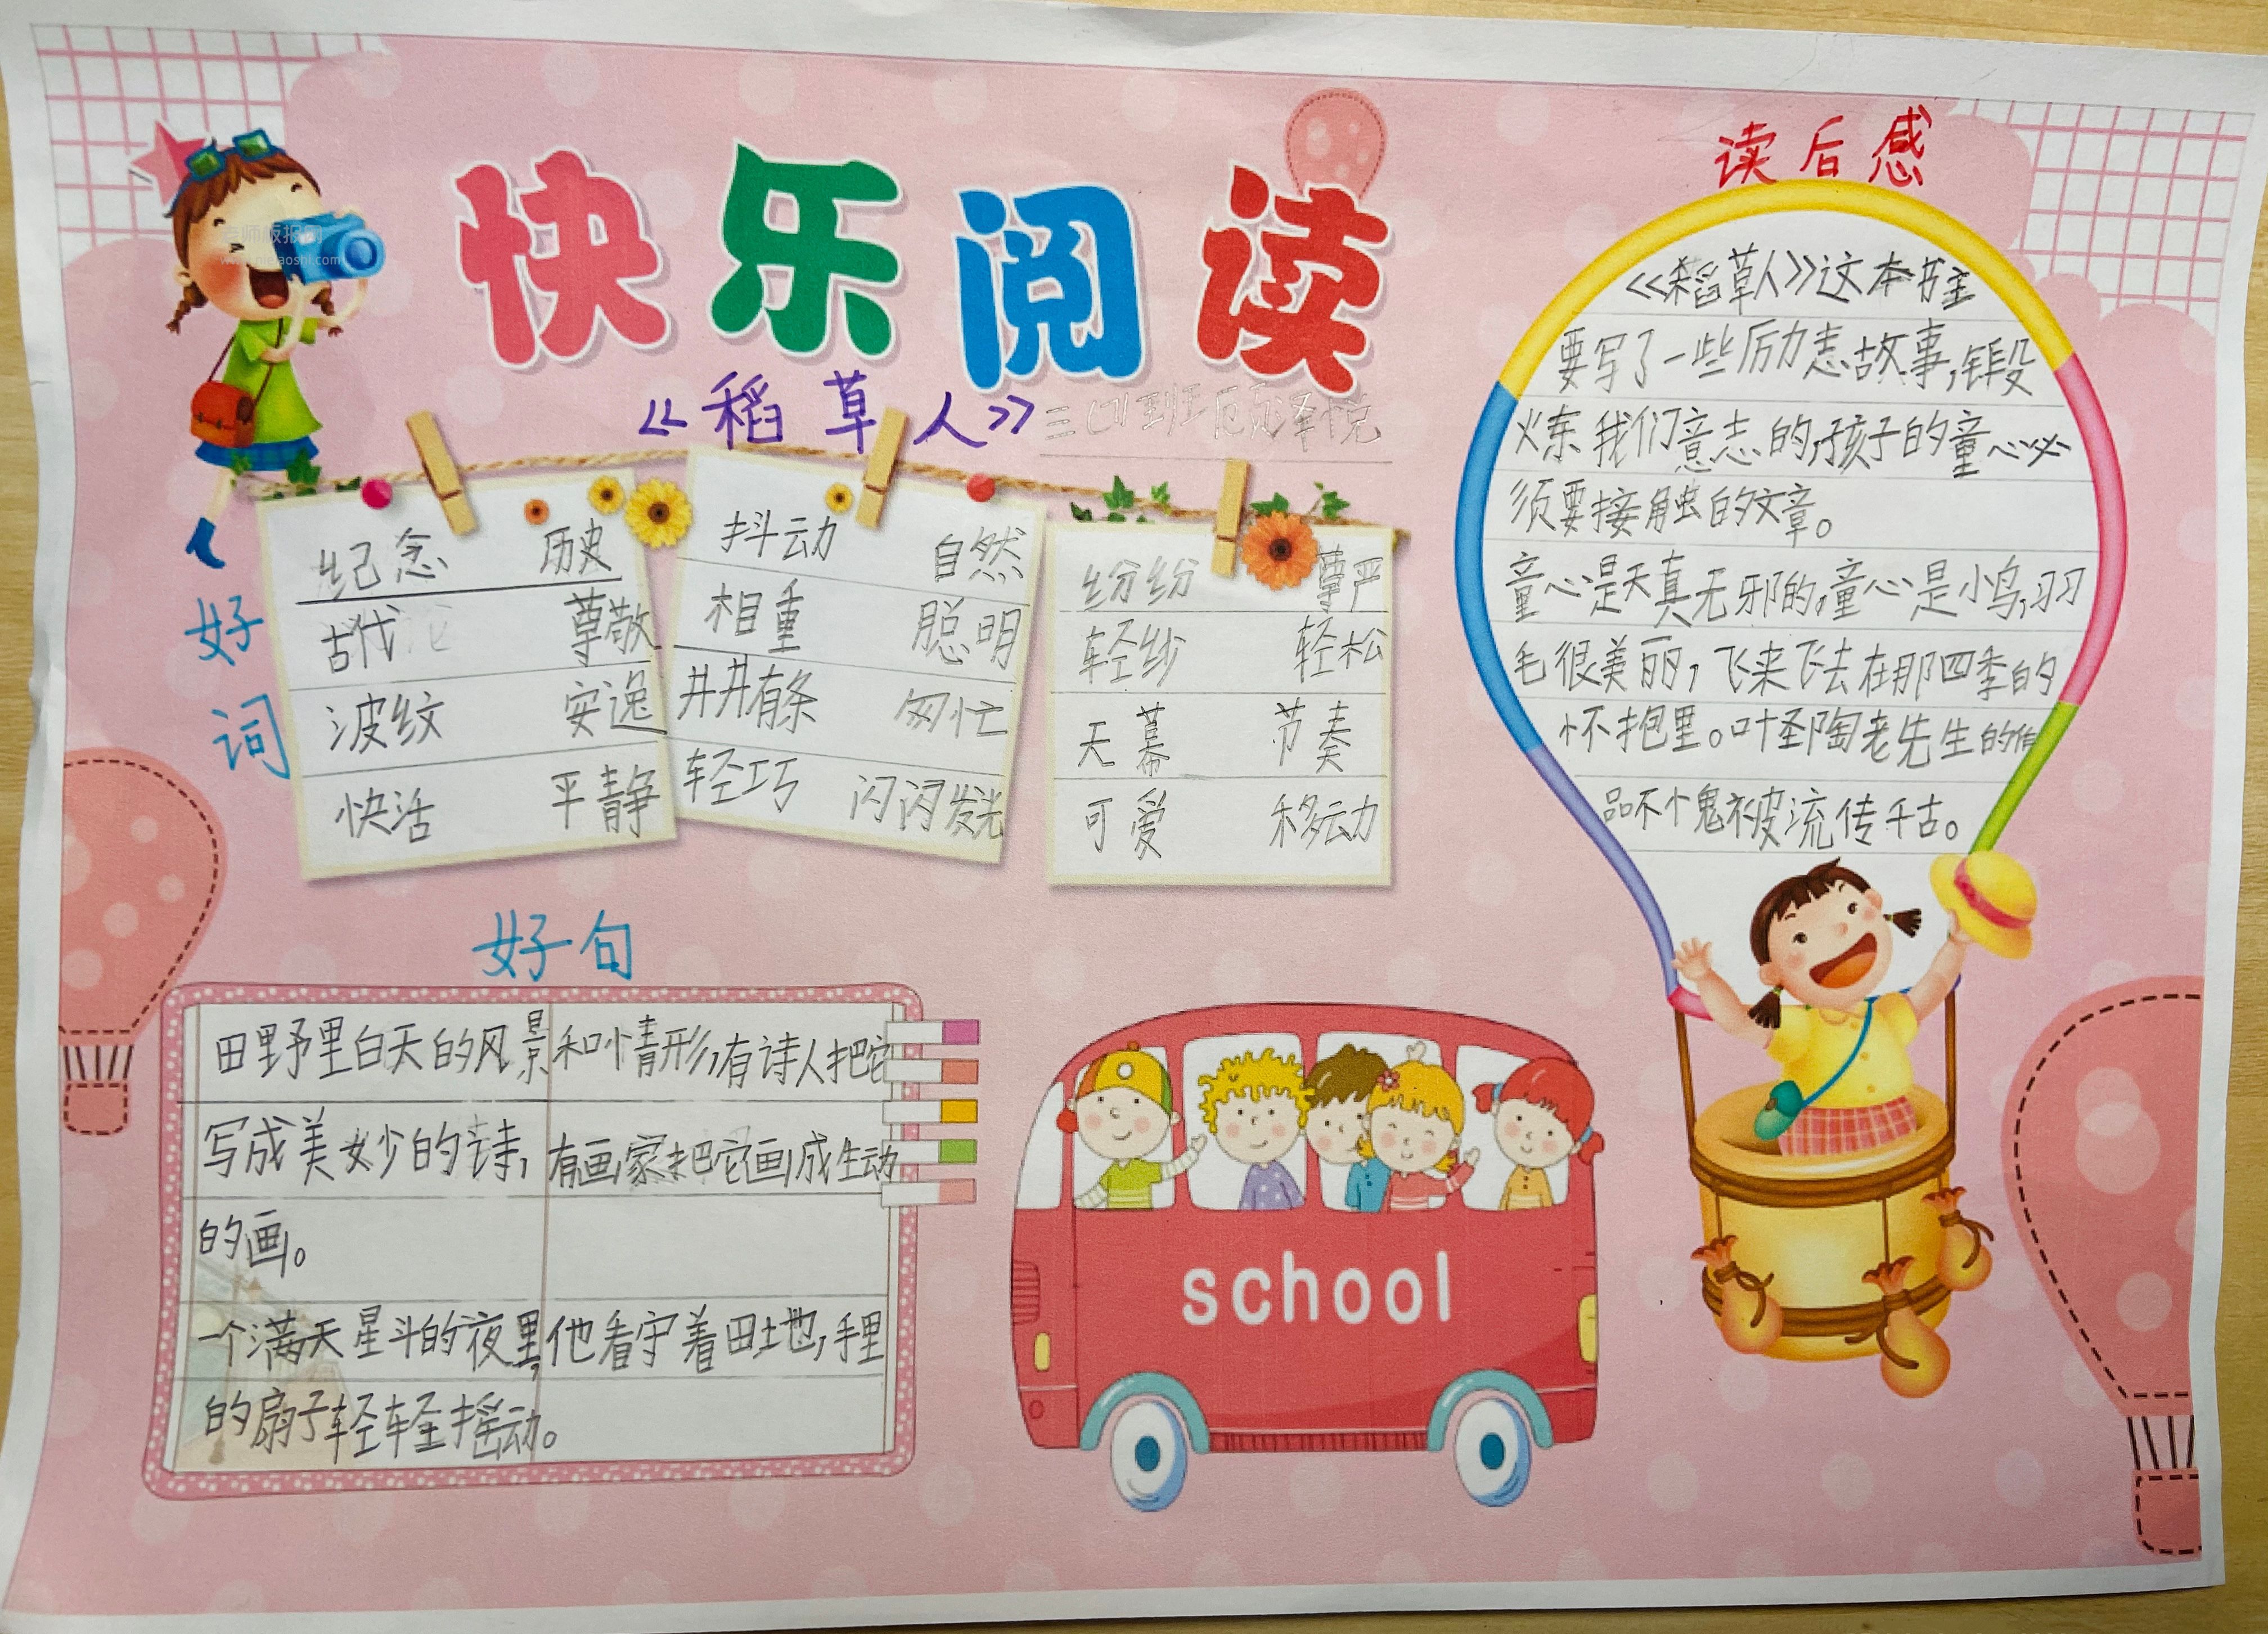 快乐阅读
《稻草人》
读后感
好词
纪念 历史
古代 尊敬
波纹 安逸
快活 平静
抖动 自然
相重 聪明
井井有条 匆忙
轻巧 闪闪发光
纷纷 尊严
轻纱 轻松
天幕 节奏
可爱 移动
好句
田野里白天的风景和情形,有诗人把它
写成美妙的诗,有画家把它画成生动
的画。
一个满天星斗的夜里,他看守着田地,手里
的扇子轻轻摇动。
school
《稻草人》这本书主
要写了一些厉志故事,锻
炼我们意志的,孩子的童心必
须要接触的文章。
童心是天真无邪的,童心是小鸟,羽
毛很美丽,飞来飞去在那四季的
怀抱里。叶圣陶老先生的作
品不愧被流传千古。